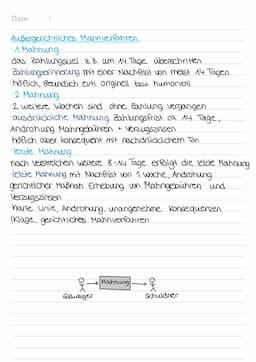 Date: /
Außergerichtliches Mahnverfahren
· 1 Mahnung
das Zahlungsziel z.B. um 14 Tage überschritten
Zahlungserinnerung mit einer Nachfrist von meist 14 Tagen
höflich, freundlich evtl. originell bzw. humorvoll
· 2 Mahnung
2 weitere Wochen sind ohne Zahlung vergangen
· ausdrückliche Mahnung, Zahlungsfrist ca. 14 Tage,
Androhung Mahngebühren + Verzugszinsen
höflich aber konsequent mit nachdrücklichem Ton
· letzte Mahnung
nach Verstreichen weitere 8-14 Tage erfolgt die letzte Mahnung
· letzte Mahnung mit Nachfrist von 1 Woche, Androhung
gerichtlicher Maßnah. Erhebung von Mahngebühren und
Verzugszinsen
Harte Linie, Androhung, unangenehme Konsequenzen
(Klage, gerichtliches Mahnverfahren
Mahnung
Gläubiger Schuldner